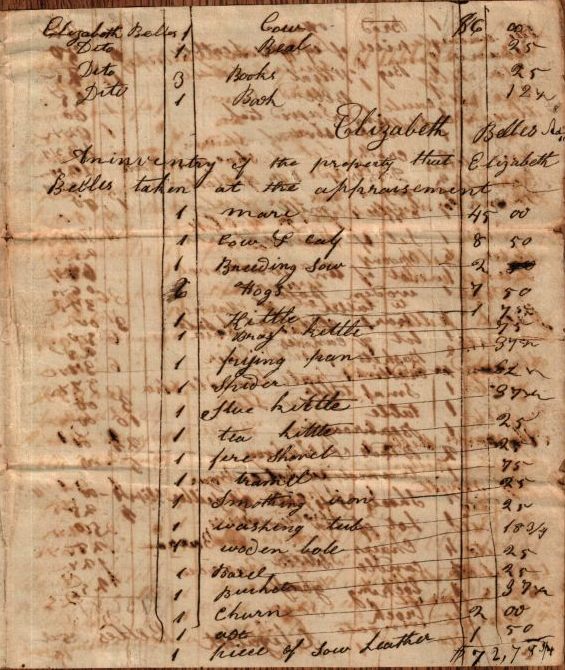 Elizabeth Belles 1 Cow $6 00
Dito 1 25
Dito 3 Books 25
Dito 1 Book 12½
Elizabeth Belles
An inventry of the property that Elizabeth
Belles taken at the appraisement
1 mare 45 00
1 Cow & Calf 8 50
1 Breeding Sow 2
Hogs 7 50
1 Kittle 1
1 kittle 75
1 frying pan 37½
1 Spider 62½
1 kittle 37½
1 tea kittle 25
1 fire Shovel 25
1 tramel 75
1 Smothing iron 25
1 washing tub 25
1 woden bole 18 3/4
1 Barel 25
1 Bucket 25
1 Churn 37½
1 axe 2 00
1 piece of Sow Leather 1 50
$72,7